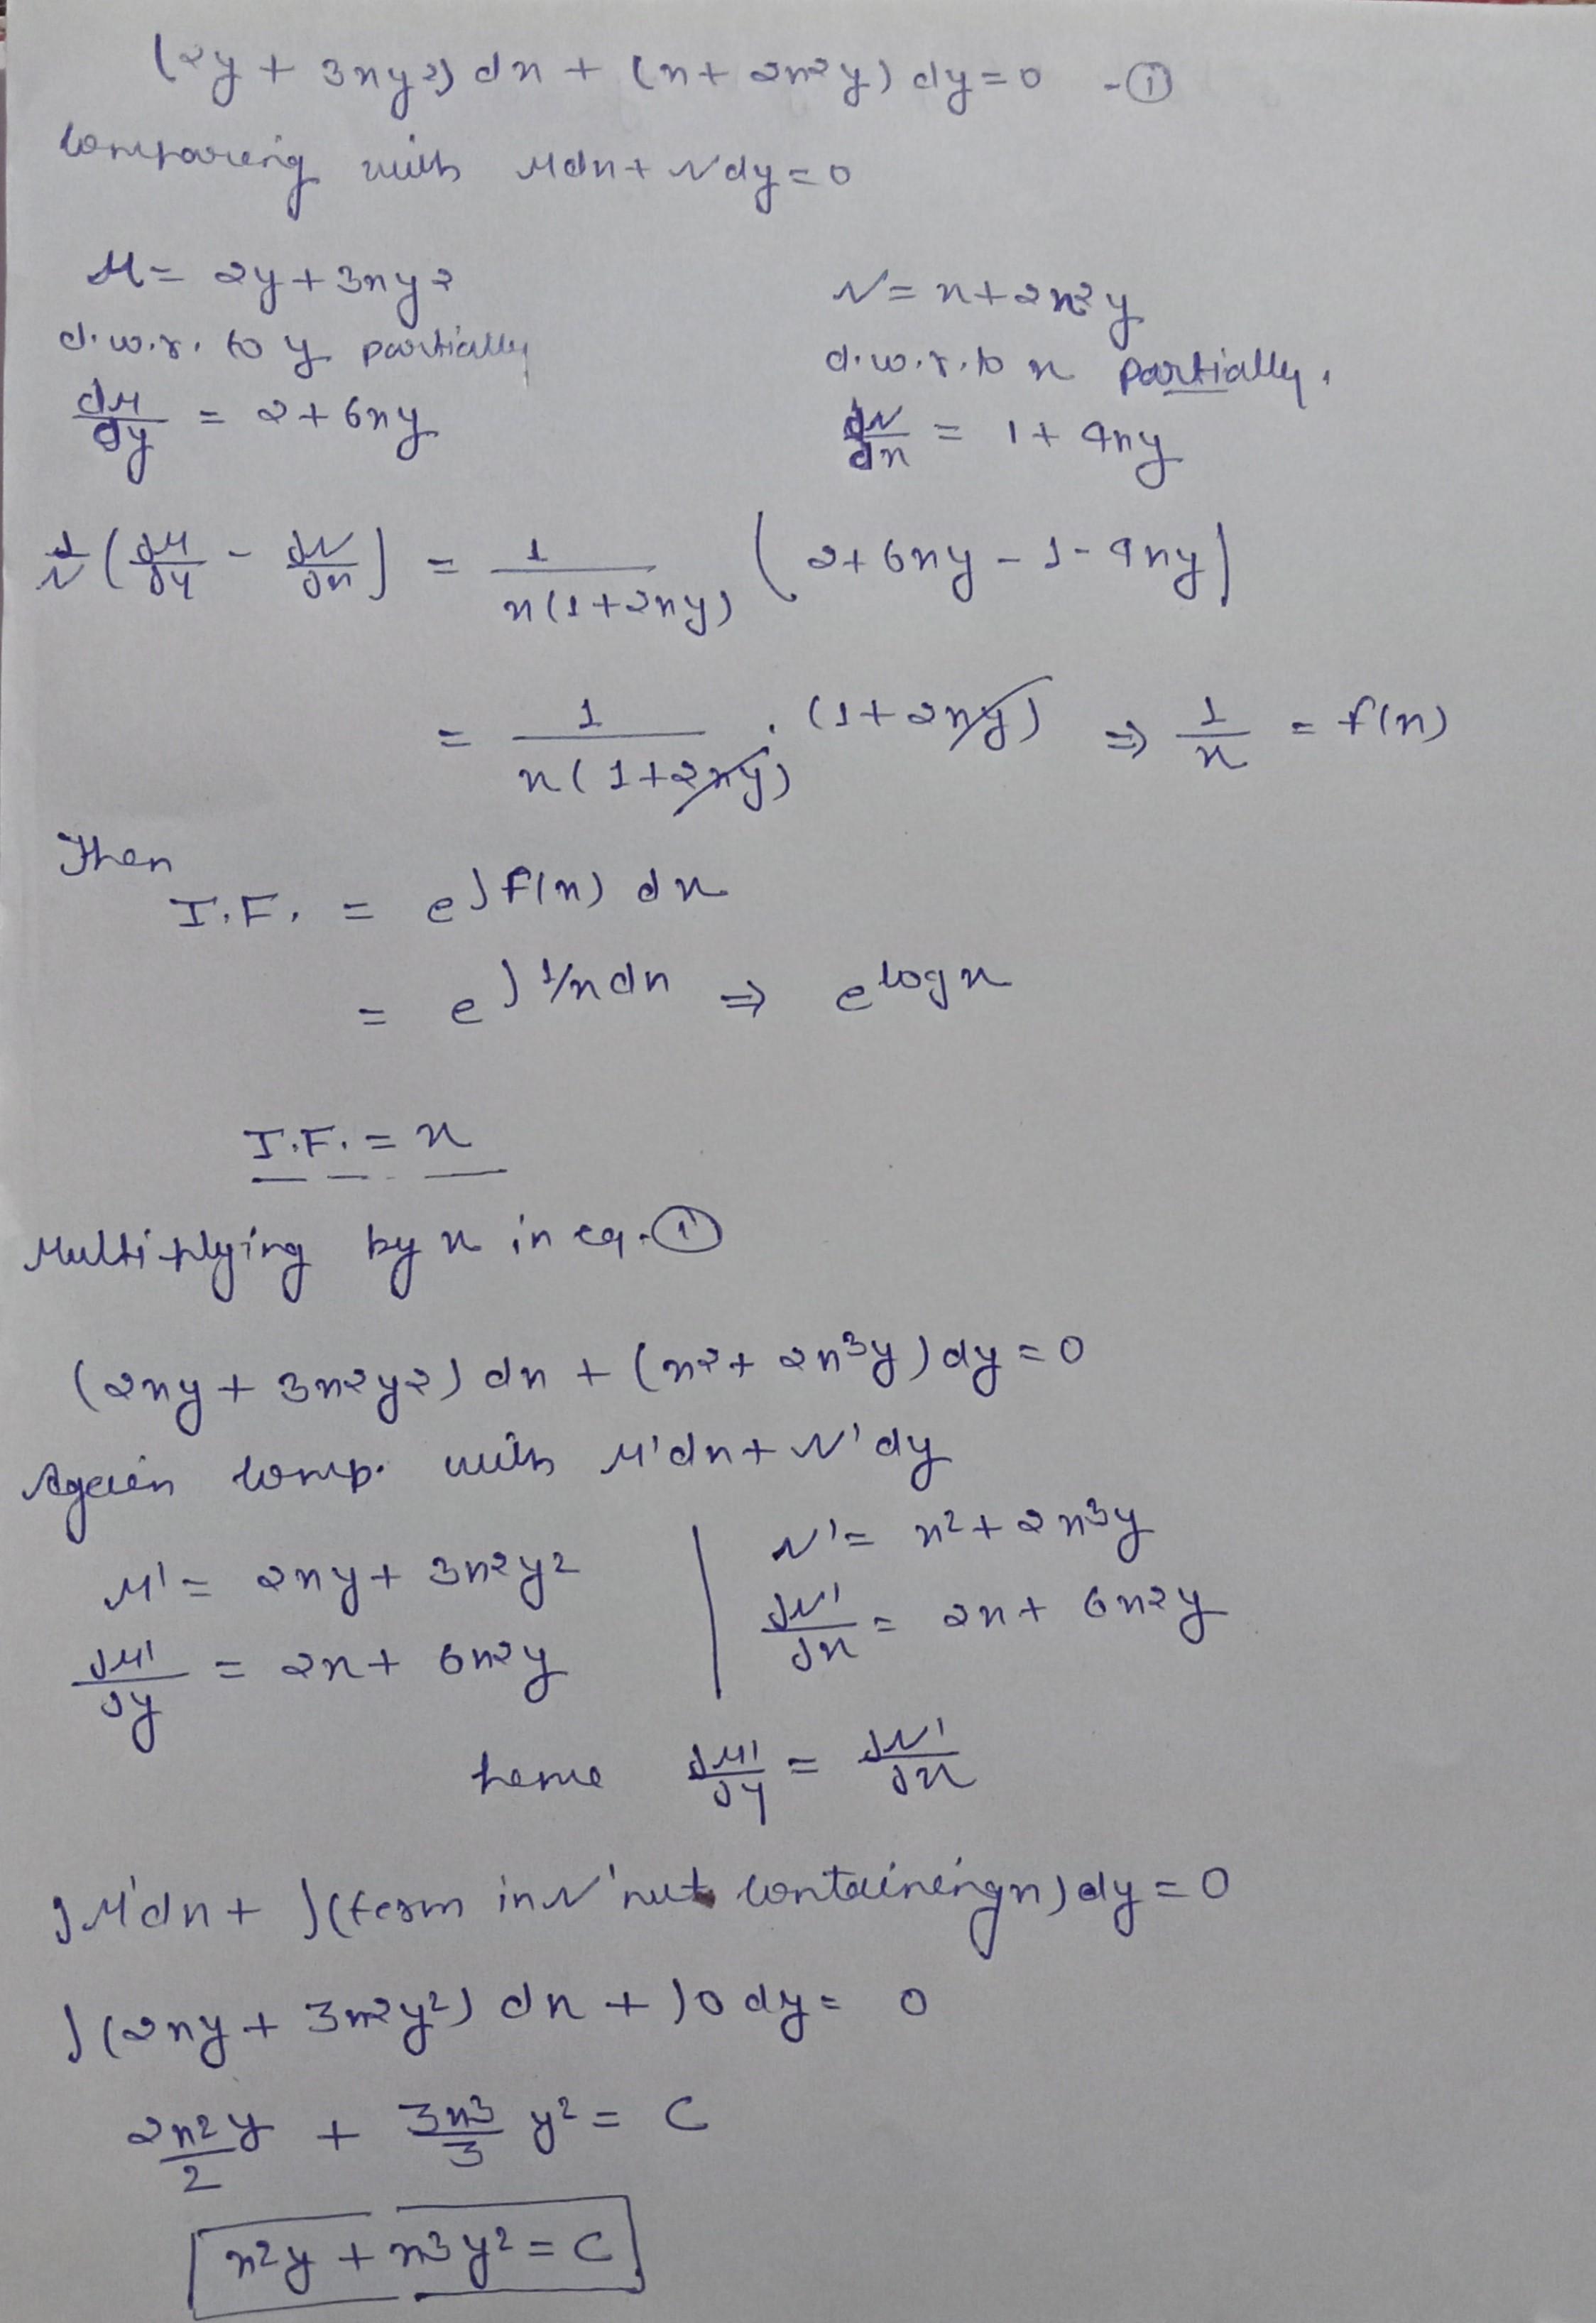 (2y + 3xy²) dx + (x + 2x²y) dy = 0 - ①
Comparing with Mdx + Ndy = 0
M = 2y + 3xy²
d.w.r. to y partially
∂M/∂y = 2 + 6xy
N = x + 2x²y
d.w.r. to x partially.
∂N/∂x = 1 + 4xy
1/N (∂M/∂y - ∂N/∂x) = 1/x(1+2xy) (2 + 6xy - 1 - 4xy)
= 1/x(1+2xy) . (1+2xy) ⇒ 1/x = f(x)
Then
I.F. = e∫f(x) dx
= e∫1/x dx ⇒ e log x
I.F. = x
Multiplying by x in eq. ①
(2xy + 3x²y²) dx + (x² + 2x³y) dy = 0
Again comp. with M'dx + N'dy
M' = 2xy + 3x²y²
∂M'/∂y = 2x + 6x²y
N' = x² + 2x³y
∂N'/∂x = 2x + 6x²y
hence ∂M'/∂y = ∂N'/∂x
∫M'dx + ∫(term in N' not containing x) dy = 0
∫(2xy + 3x²y²) dx + ∫0 dy = 0
2x²y/2 + 3x³/3 y² = C
x²y + x³y² = C